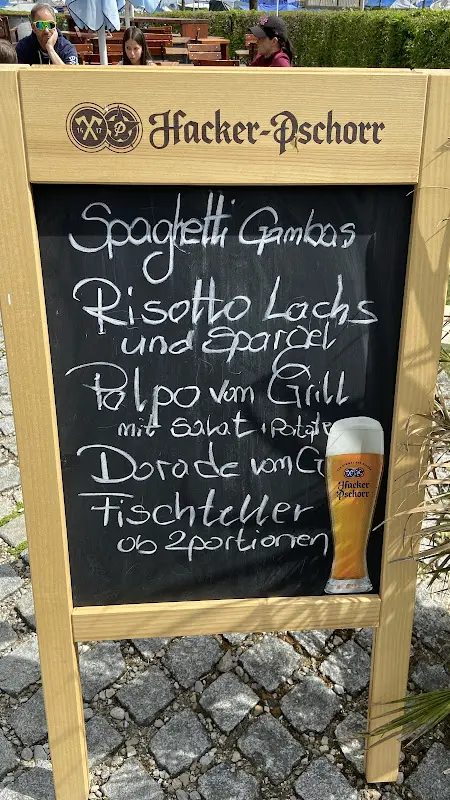 Hacker-Pschorr
Spaghetti Gambas
Risotto Lachs
und Spargel
Polpo vom Grill
mit Salat +
Dorade vom G
Fischteller
ab 2 portionen
Hacker
Pschorr